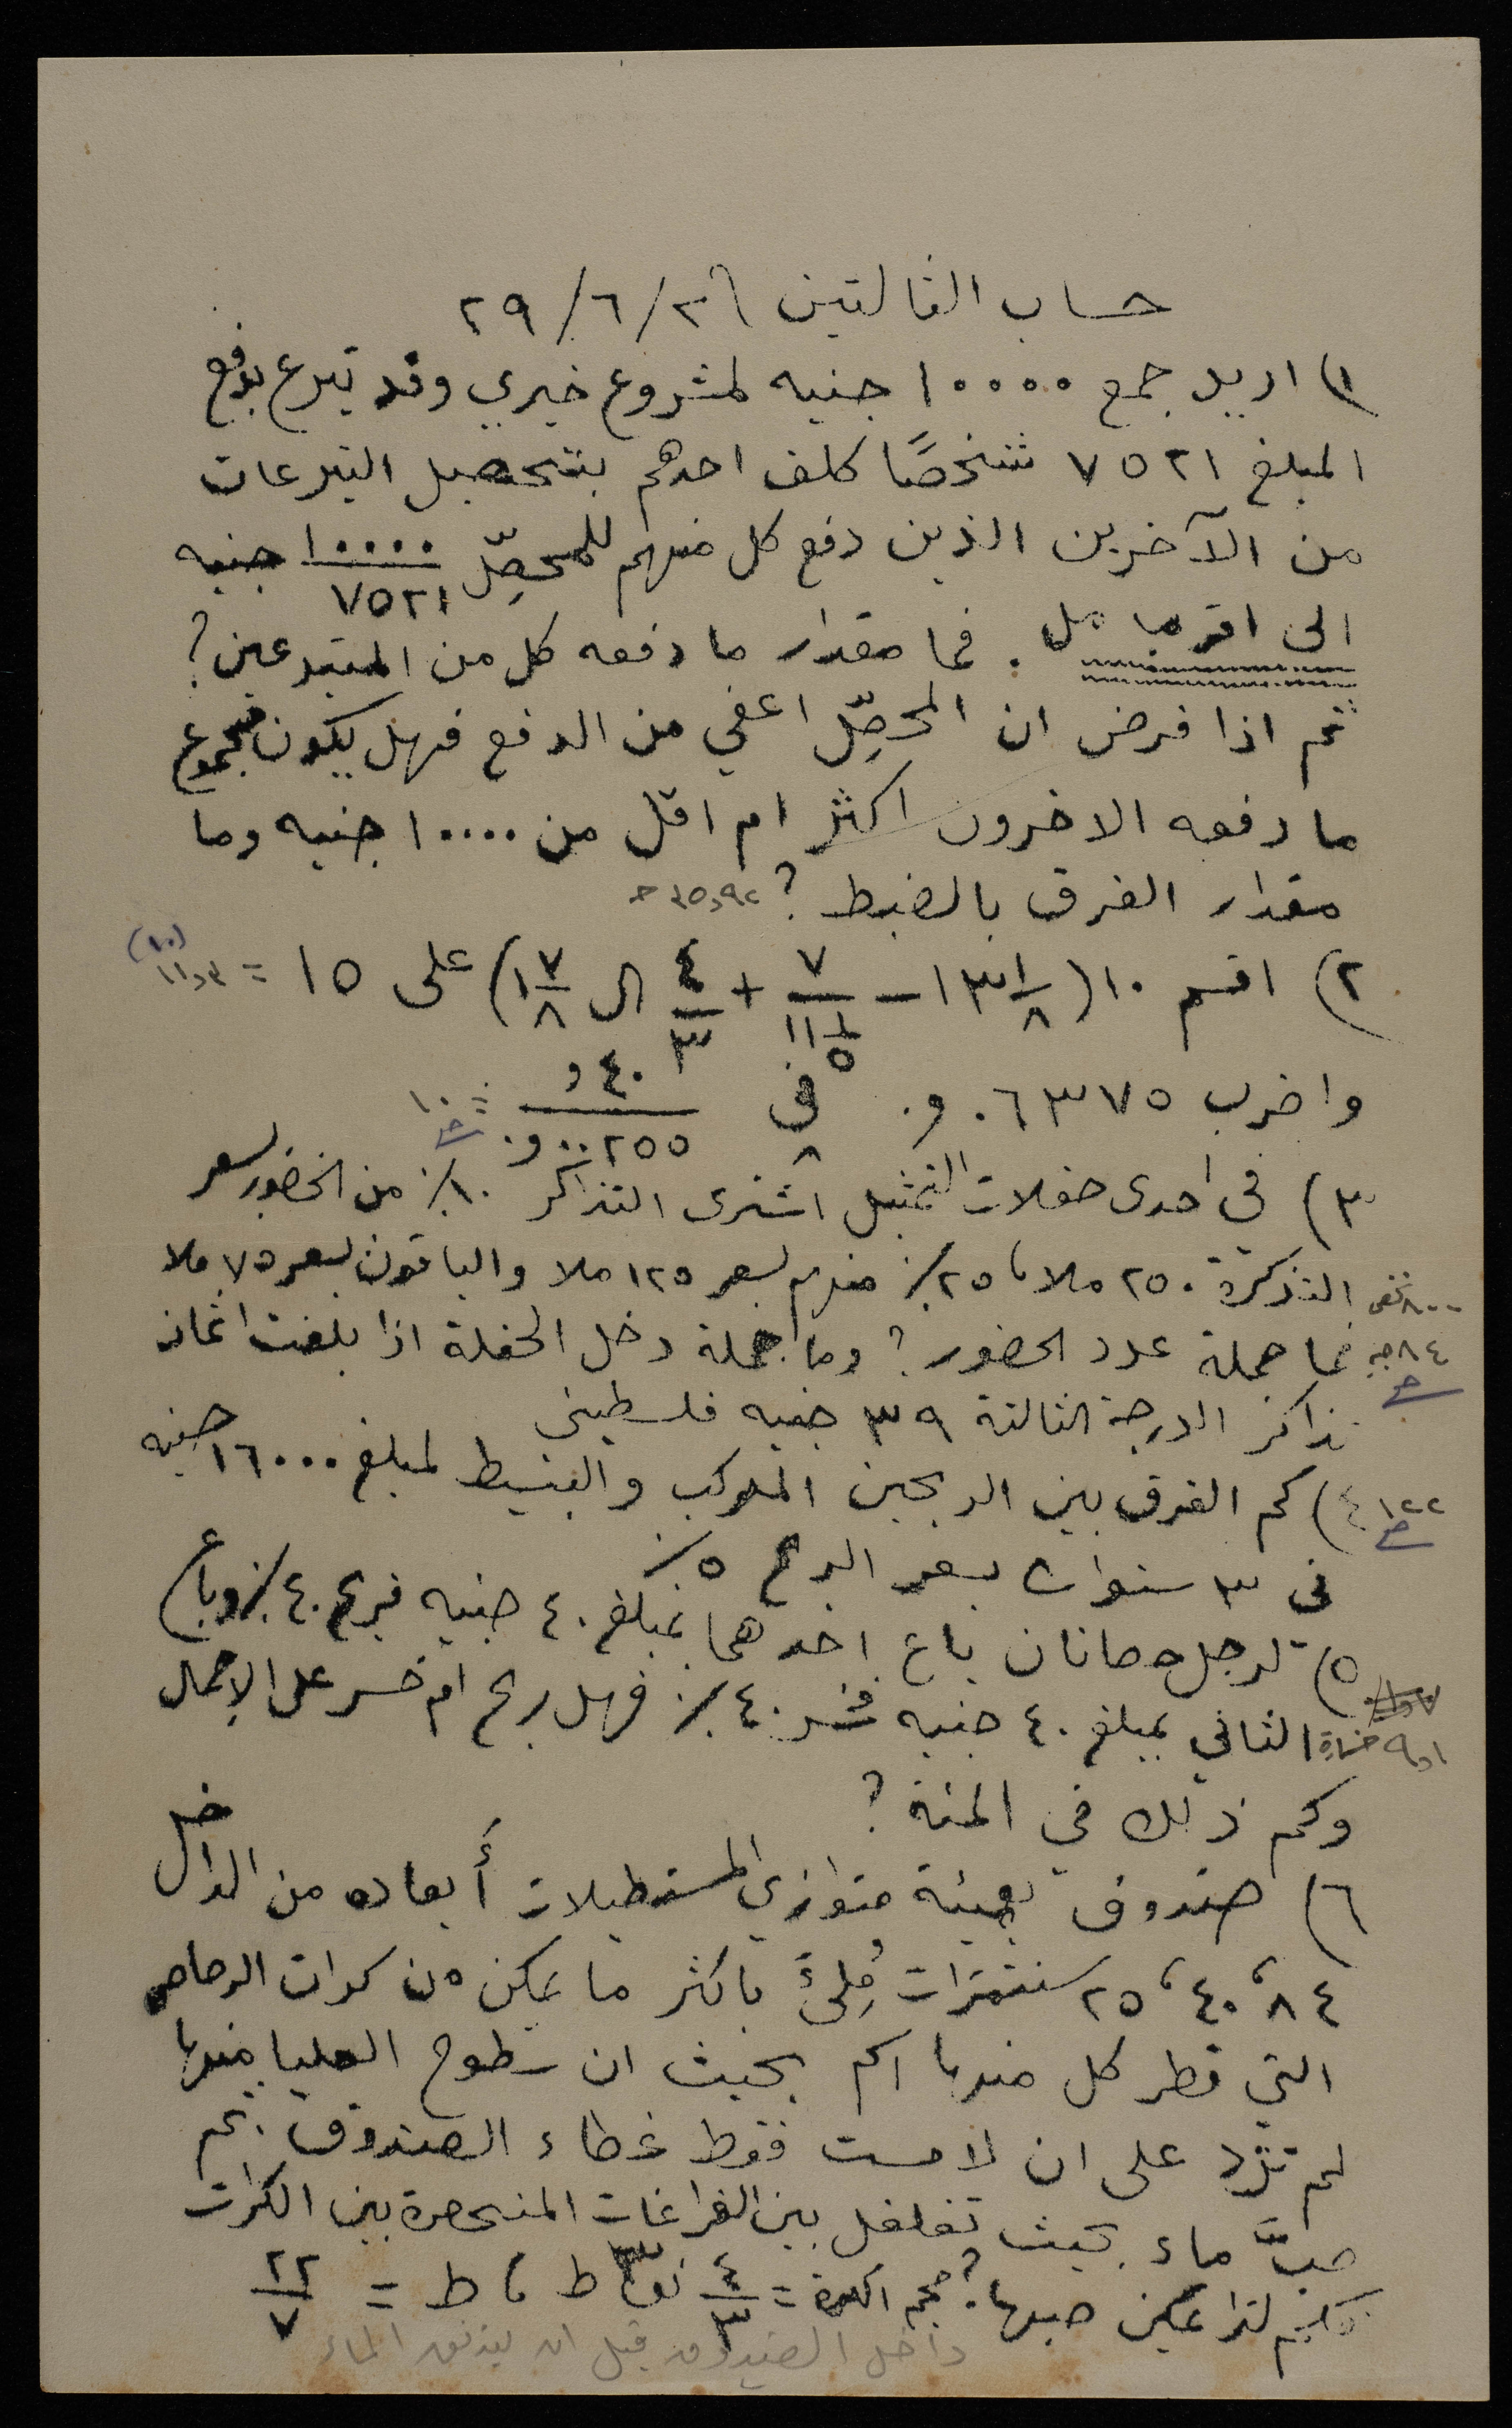 حساب الثالثين ٢٩/٦/٢٦
١) اريد جمع ١٠٠٠٠ جنيه لمشروع خيري وقد تبرع بدفع
المبلغ ٧٥٢١ شخصًا كلف احدهم بتحصيل التبرعات
من الآخرين الذين دفع كل منهم للمحصِّل ١٠٠٠٠/٧٥٢١ جنيه
الى اقرب مل. فما مقدار ما دفعه كل من المتبرعين؟
ثم اذا فرض ان المحصِّل اعفي من الدفع فهل يكون مجموع
ما دفعه الاخرون اكثر ام اقل من ١٠٠٠٠ جنيه وما
مقدار الفرق بالضبط؟
٢) اقسم ١٠ (١٣ ١/٨ − ٧/(١١ ١/٥) + ٤/٣ ال ١ ٧/٨) على ١٥ = (١٠)
واضرب ٠٦٣٧٥و٠ في ٤٠و/٠٠٢٥٥و٠ = ١٠
٣) في احدى حفلات التمثيل اشترى التذاكر ١٠٪ من الحضور بسعر
التذكرة ٢٥٠ ملا، ٢٥٪ منهم بسعر ١٢٥ ملا والباقون بسعر ٧٥ ملا
٨٠٠ شخص
فما جملة عدد الحضور؟ وما جملة دخل الحفلة اذا بلغت اثمان
٨٤ ج
تذاكر الدرجة الثالثة ٣٩ جنيه فلسطيني
٤) كم الفرق بين الربحين المركب والبسيط لمبلغ ١٦٠٠٠ جنيه
١٢٢ ج
في ٣ سنوات بسعر الربح ٥٪
٥) لرجل حصانان باع احدهما بمبلغ ٤٠ جنيه فربح ٤٠٪ وباع
الثاني بمبلغ ٤٠ جنيه فخسر ٤٠٪ فهل ربح ام خسر على الإجمال
خسارة
وكم ذلك في المئة؟
٦) صندوق بهيئة متوازي المستطيلات أبعاده من الداخل
٨٤، ٤٠، ٢٥ سنتمترات مُلِئَ باكثر ما يمكن من كرات الرصاص
التي قطر كل منها ١سم بحيث ان سطوح العليا منها
لم تزد على ان لامست فقط غطاء الصندوق. ثم
صبَّ ماء بحيث تغلغل بين الفراغات المنحصرة بين الكرات
فكم لترا يمكن صبها؟ حجم الكرة = ٤/٣ نق٣ ط، ط = ٢٢/٧
داخل الصندوق قبل ان يندلق الماء